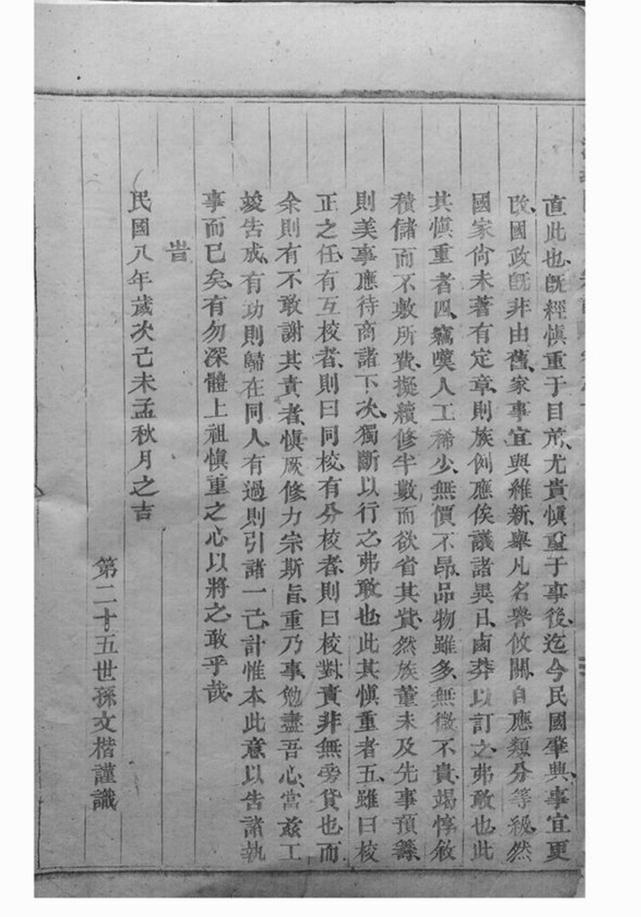 直此也旣經愼重于目前尤貴愼重于事後迄今民國肇典事宜更
改國政旣非由舊家事宜與維新舉凡名譽攸關自應類分等級然
國家尙未著有定章則族例應俟議諸異日鹵莽以訂之弗敢也此
其愼重者四竊嘆人工稀少無價不昂品物雖多無微不貴竭惇敘
積儲而不敷所費擬續修半數而欲省其貲然族董未及先事預籌
則美事應待商諸下次獨斷以行之弗敢也此其愼重者五雖曰校
正之任有互校者則曰同校有分校者則曰校對責非無旁貸也而
余則有不敢謝其責者愼厥修力宗斯旨重乃事勉盡吾心當茲工
竣告成有功則歸在同人有過則引諸一己計惟本此意以告諸執
事而已矣有勿深體上祖愼重之心以將之敢乎哉
旹
民國八年歲次己未孟秋月之吉
第二十五世孫文楷謹識